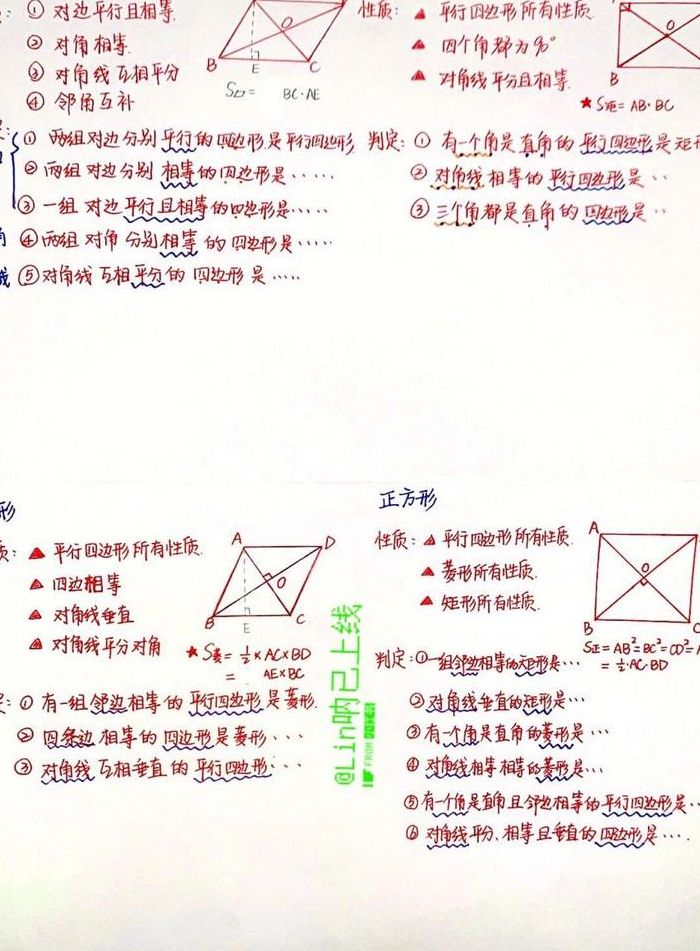 ① 对边平行且相等.
② 对角相等.
③ 对角线互相平分
④ 邻角互补
O
B
E
C
S▱= BC·AE
① 两组对边分别平行的四边形是平行四边形
② 两组对边分别相等的四边形是……
③ 一组对边平行且相等的四边形是……
④ 两组对角分别相等的四边形是……
⑤ 对角线互相平分的四边形是……
性质: ▲ 平行四边形所有性质.
▲ 四个角都为90°
▲ 对角线平分且相等.
O
B
★S矩= AB·BC
判定: ① 有一个角是直角的平行四边形是矩形
② 对角线相等的平行四边形是··
③ 三个角都是直角的四边形是··
形
质: ▲ 平行四边形所有性质.
▲ 四边相等
▲ 对角线垂直
▲ 对角线平分对角
A
D
O
B
E
C
★S菱= ½×AC×BD
= AE×BC
① 有一组邻边相等的平行四边形是菱形.
② 四条边相等的四边形是菱形···
③ 对角线互相垂直的平行四边形···
正方形
性质: ▲ 平行四边形所有性质.
▲ 菱形所有性质.
▲ 矩形所有性质.
A
O
B
C
S正=AB²=BC²=CD²=A
= ½·AC·BD
判定: ① 一组邻边相等的矩形是···
② 对角线垂直的矩形是···
③ 有一个角是直角的菱形是···
④ 对角线相等相等的菱形是···
⑤ 有一个角是直角且邻边相等的平行四边形是··
⑥ 对角线平分、相等且垂直的四边形是····
@Lin呐已上线
FROM